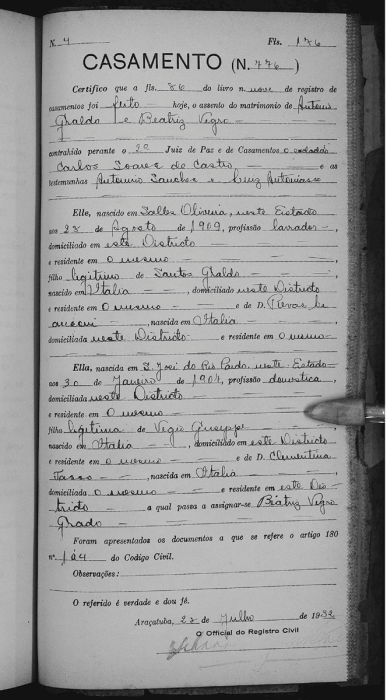 N. 4 Fls. 176
CASAMENTO (N. 776)
Certifico que a fls. 86 do livro n. nove de registro de
casamentos foi feito hoje, o assento do matrimonio de Antonio
Graldo e Beatriz Vigro
contrahido perante o 2º Juiz de Paz e de Casamentos o cidadão
Carlos Soares de Castro e as
testemunhas Antonio Sanches e Cruz
Elle, nascido em Salles Oliveira, neste Estado
aos 28 de Agosto de 1909, profissão lavrador,
domiciliado em este Districto
e residente em O mesmo
filho legitimo de Santos Graldo
nascido em Italia, domiciliado neste Districto
e residente em O mesmo e de D.
nascida em Italia
domiciliada neste Districto e residente em O mesmo
Ella, nascida em S. José do Rio Pardo, neste Estado
aos 30 de Janeiro de 1904, profissão domestica,
domiciliada neste Districto
e residente em O mesmo
filha legitima de Vigro Giuseppe
nascido em Italia, domiciliado em este Districto
e residente em O mesmo e de D. Clementina
Tasso, nascida em Italia,
domiciliada O mesmo e residente em este Dis-
tricto a qual passa a assignar-se Beatriz Vigro
Grado
Foram apresentados os documentos a que se refere o artigo 180
Nº. 1 á 4 do Codigo Civil.
Observações:
O referido é verdade e dou fé.
Araçatuba, 28 de Julho de 1932
O Official do Registro Civil